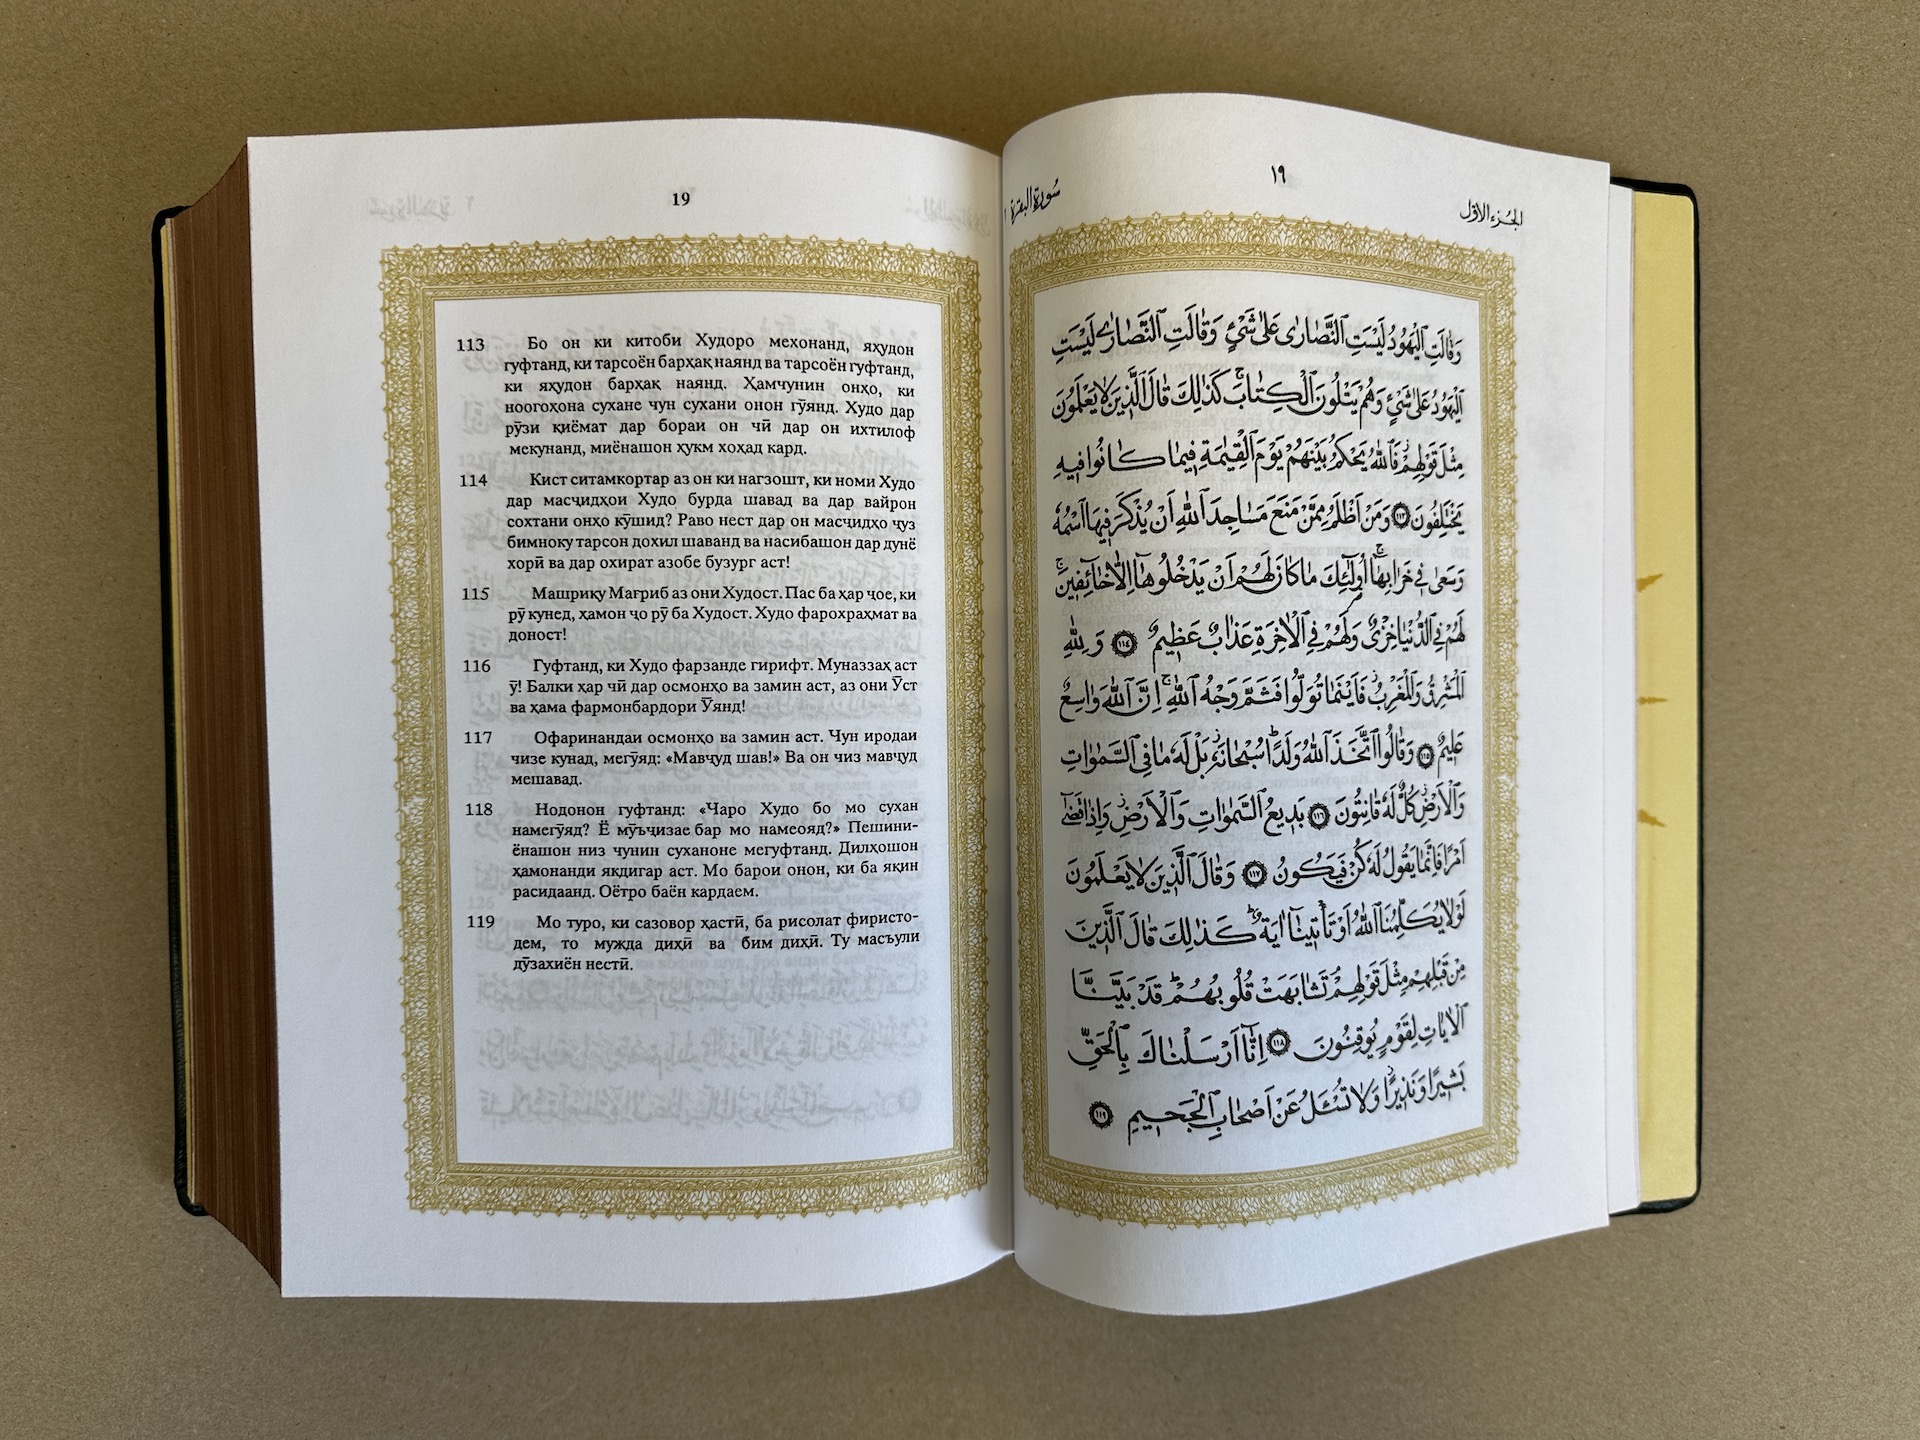 19
113 Бо он ки китоби Худоро мехонанд, яҳудон
гуфтанд, ки тарсоён барҳақ наянд ва тарсоён гуфтанд,
ки яҳудон барҳақ наянд. Ҳамчунин онҳо, ки
ноогоҳона сухане чун сухани онон гӯянд. Худо дар
рӯзи қиёмат дар бораи он чӣ дар он ихтилоф
мекунанд, миёнашон ҳукм хоҳад кард.
114 Кист ситамкортар аз он ки нагзошт, ки номи Худо
дар масҷидҳои Худо бурда шавад ва дар вайрон
сохтани онҳо кӯшид? Раво нест дар он масҷидҳо ҷуз
бимноку тарсон дохил шаванд ва насибашон дар дунё
хорӣ ва дар охират азобе бузург аст!
115 Машриқу Мағриб аз они Худост. Пас ба ҳар ҷое, ки
рӯ кунед, ҳамон ҷо рӯ ба Худост. Худо фарохраҳмат ва
доност!
116 Гуфтанд, ки Худо фарзанде гирифт. Муназзаҳ аст
ӯ! Балки ҳар чӣ дар осмонҳо ва замин аст, аз они Ӯст
ва ҳама фармонбардори Ӯянд!
117 Офаринандаи осмонҳо ва замин аст. Чун иродаи
чизе кунад, мегӯяд: «Мавҷуд шав!» Ва он чиз мавҷуд
мешавад.
118 Нодонон гуфтанд: «Чаро Худо бо мо сухан
намегӯяд? Ё мӯъҷизае бар мо намеояд?» Пешини-
ёнашон низ чунин суханоне мегуфтанд. Дилҳошон
ҳамонанди якдигар аст. Мо барои онон, ки ба яқин
расидаанд. Оётро баён кардаем.
119 Мо туро, ки сазовор ҳастӣ, ба рисолат фиристо-
дем, то мужда диҳӣ ва бим диҳӣ. Ту масъули
дӯзахиён нестӣ.
١٩
الجزء الاول
سورة البقرة
وَقَالَتِ الْيَهُودُ لَيْسَتِ النَّصَارٰى عَلٰى شَيْءٍ وَقَالَتِ النَّصَارٰى لَيْسَتِ
الْيَهُودُ عَلٰى شَيْءٍ وَهُمْ يَتْلُونَ الْكِتَابَ كَذٰلِكَ قَالَ الَّذِينَ لَا يَعْلَمُونَ
مِثْلَ قَوْلِهِمْ فَاللّٰهُ يَحْكُمُ بَيْنَهُمْ يَوْمَ الْقِيٰمَةِ فِيمَا كَانُوا فِيهِ
يَخْتَلِفُونَ ١١٣ وَمَنْ اَظْلَمُ مِمَّنْ مَنَعَ مَسَاجِدَ اللّٰهِ اَنْ يُذْكَرَ فِيهَا اسْمُهُ
وَسَعٰى فِي خَرَابِهَا اُولٰٓئِكَ مَا كَانَ لَهُمْ اَنْ يَدْخُلُوهَٓا اِلَّا خَٓائِفِينَ
لَهُمْ فِي الدُّنْيَا خِزْيٌ وَلَهُمْ فِي الْاٰخِرَةِ عَذَابٌ عَظِيمٌ ١١٤ وَلِلّٰهِ
الْمَشْرِقُ وَالْمَغْرِبُ فَاَيْنَمَا تُوَلُّوا فَثَمَّ وَجْهُ اللّٰهِ اِنَّ اللّٰهَ وَاسِعٌ
عَلِيمٌ ١١٥ وَقَالُوا اتَّخَذَ اللّٰهُ وَلَدًا سُبْحَانَهُ بَلْ لَهُ مَا فِي السَّمٰوَاتِ
وَالْاَرْضِ كُلٌّ لَهُ قَانِتُونَ ١١٦ بَدِيعُ السَّمٰوَاتِ وَالْاَرْضِ وَاِذَا قَضٰٓى
اَمْرًا فَاِنَّمَا يَقُولُ لَهُ كُنْ فَيَكُونُ ١١٧ وَقَالَ الَّذِينَ لَا يَعْلَمُونَ
لَوْلَا يُكَلِّمُنَا اللّٰهُ اَوْ تَأْتِينَٓا اٰيَةٌ كَذٰلِكَ قَالَ الَّذِينَ
مِنْ قَبْلِهِمْ مِثْلَ قَوْلِهِمْ تَشَابَهَتْ قُلُوبُهُمْ قَدْ بَيَّنَّا
الْاٰيَاتِ لِقَوْمٍ يُوقِنُونَ ١١٨ اِنَّٓا اَرْسَلْنَاكَ بِالْحَقِّ
بَشِيرًا وَنَذِيرًا وَلَا تُسْـَٔلُ عَنْ اَصْحَابِ الْجَحِيمِ ١١٩